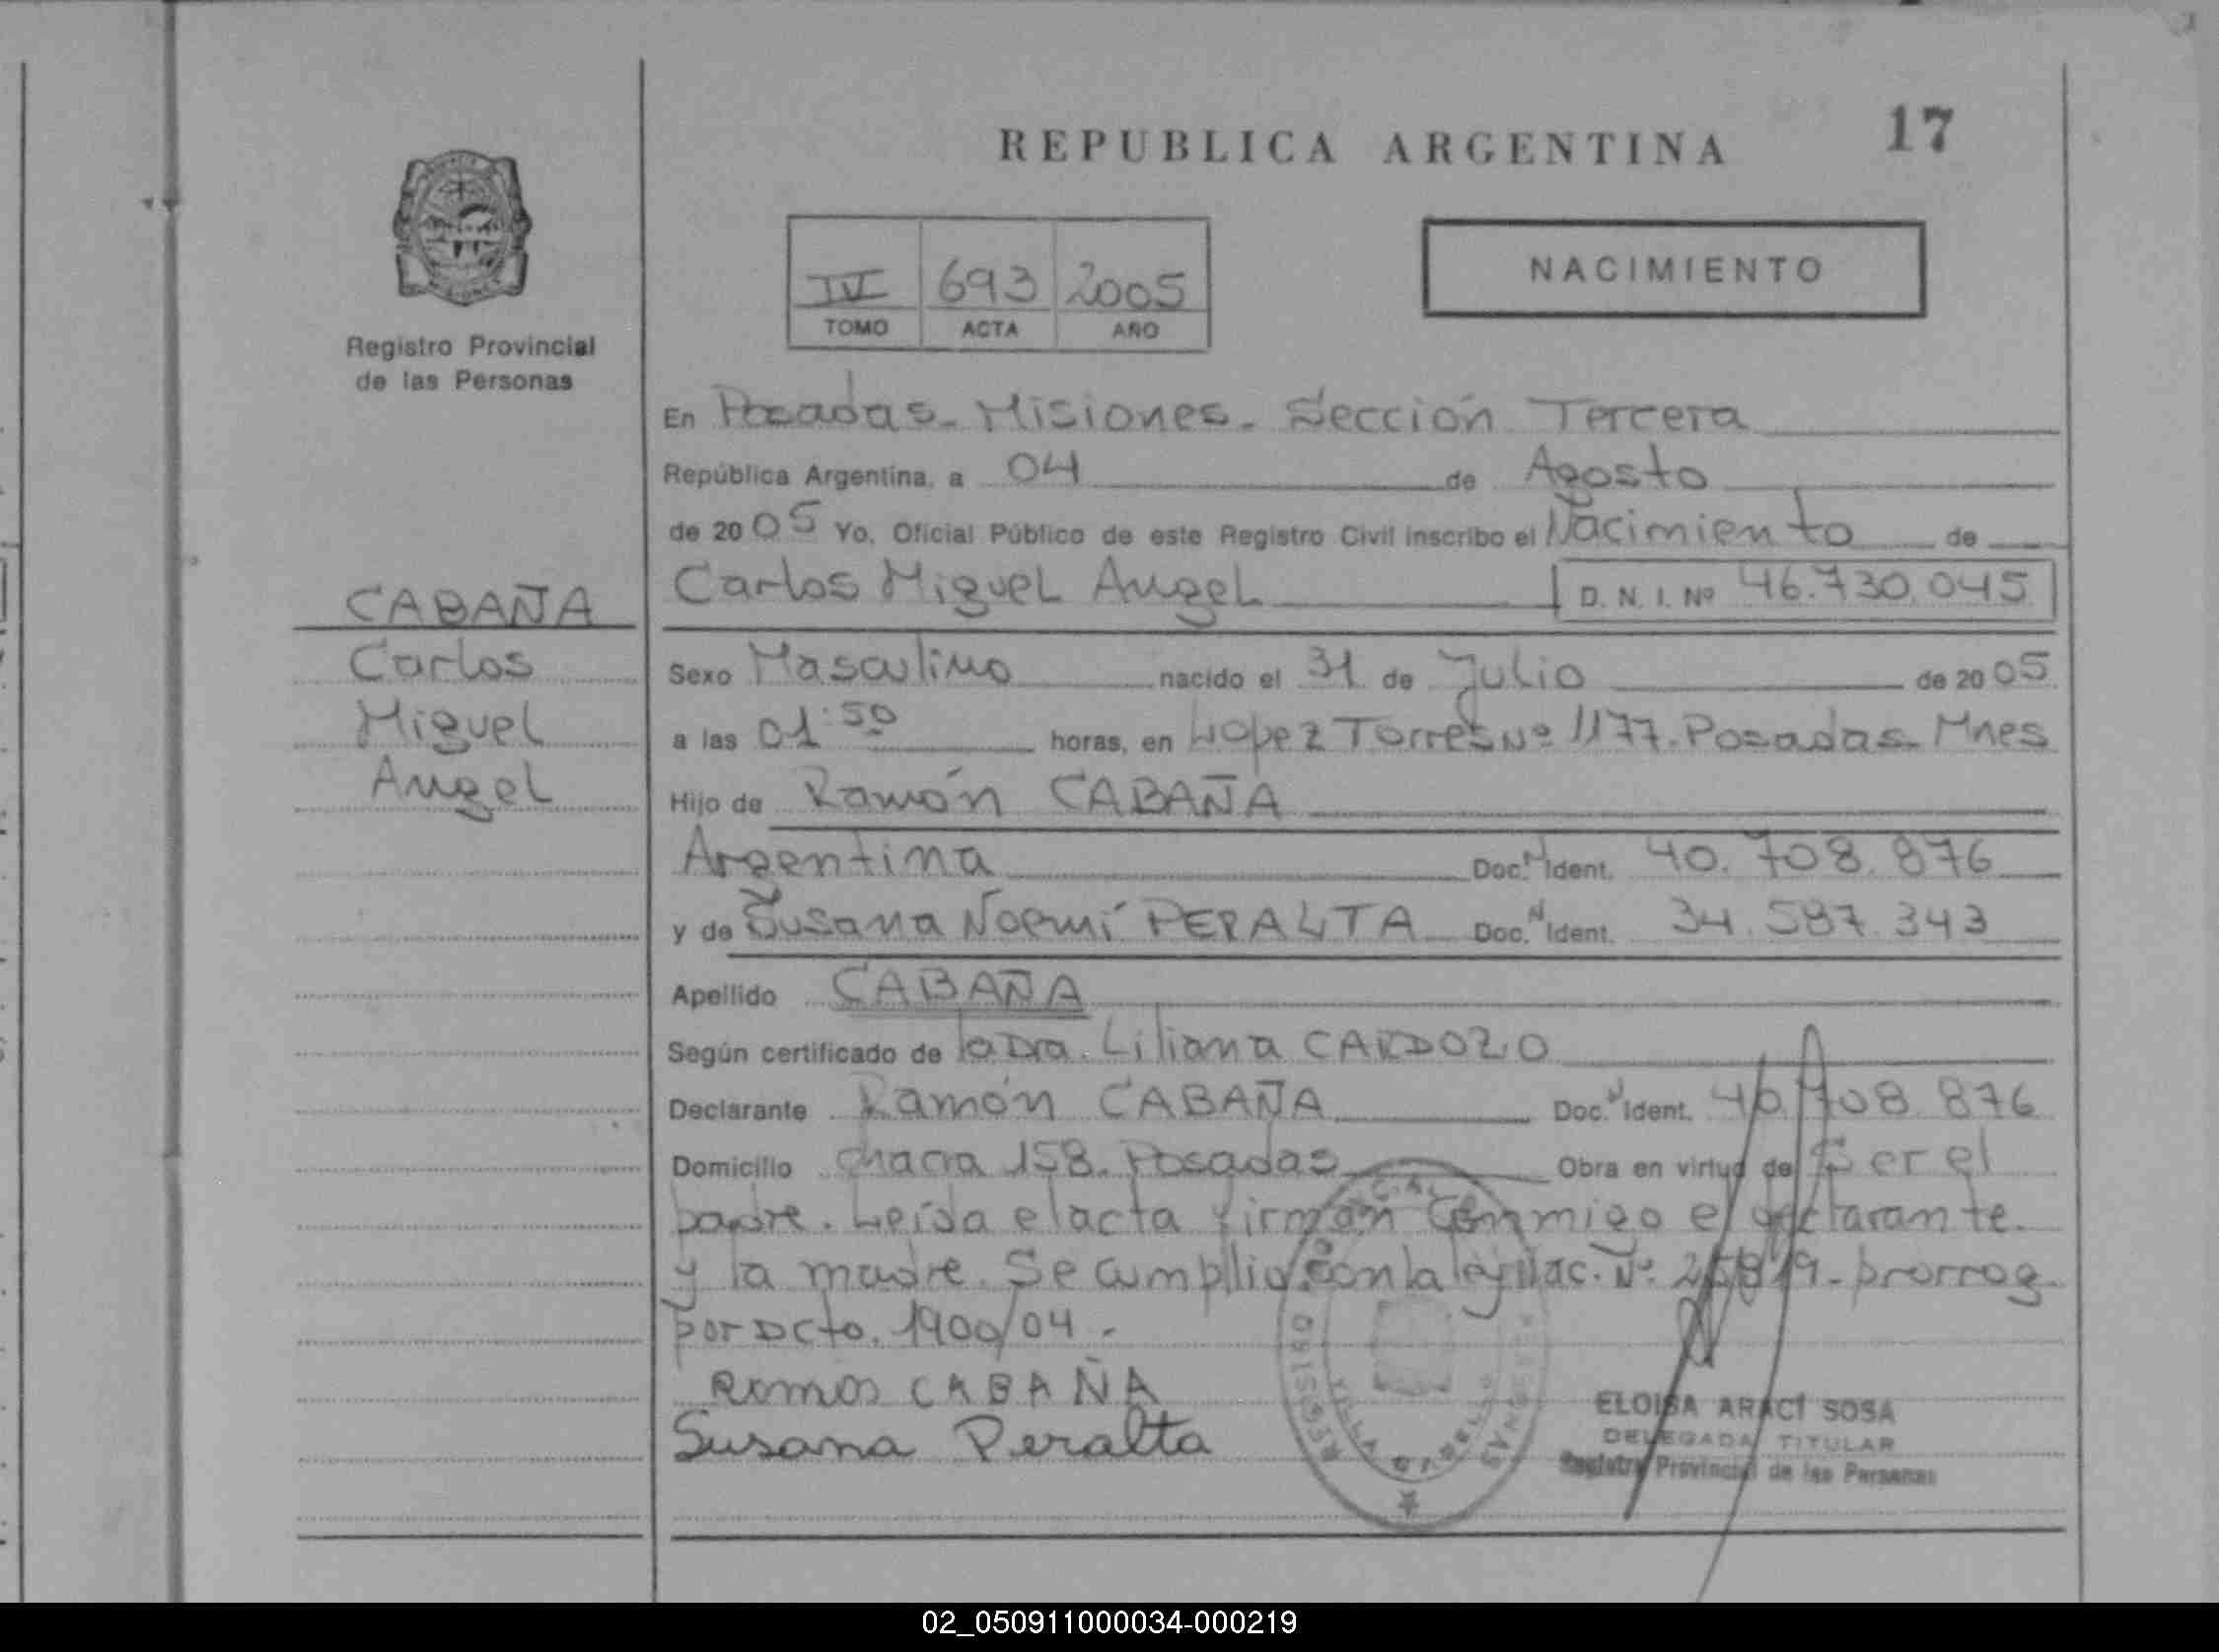 REPUBLICA ARGENTINA 17
IV 693 2005
TOMO ACTA AÑO
NACIMIENTO
Registro Provincial
de las Personas
CABAÑA
Carlos
Miguel
Angel
En Posadas. Misiones. Sección Tercera
República Argentina, a 04 de Agosto
de 2005 Yo, Oficial Público de este Registro Civil inscribo el Nacimiento de
Carlos Miguel Angel D. N. I. Nº 46.730.045
Sexo Masculino nacido el 31 de Julio de 2005
a las 01:50 horas, en López Torres Nº 1177. Posadas. Mnes
Hijo de Ramón CABAÑA
Argentina Doc. N Ident. 40.708.876
y de Susana Noemí PERALTA Doc. N Ident. 34.587.343
Apellido CABAÑA
Según certificado de la Dra. Liliana CARDOZO
Declarante Ramón CABAÑA Doc. N Ident. 40.708.876
Domicilio chacra 158. Posadas Obra en virtud de Ser el
padre. Leída el acta firman conmigo el declarante
y la madre. Se cumplió con la ley Nac. Nº 25819. prorrog
por Dcto. 1900/04.-
Ramos CABAÑA
Susana Peralta
REGISTRO
ELOISA ARACI SOSA
DELEGADA TITULAR
Registro Provincial de las Personas
02_050911000034-000219